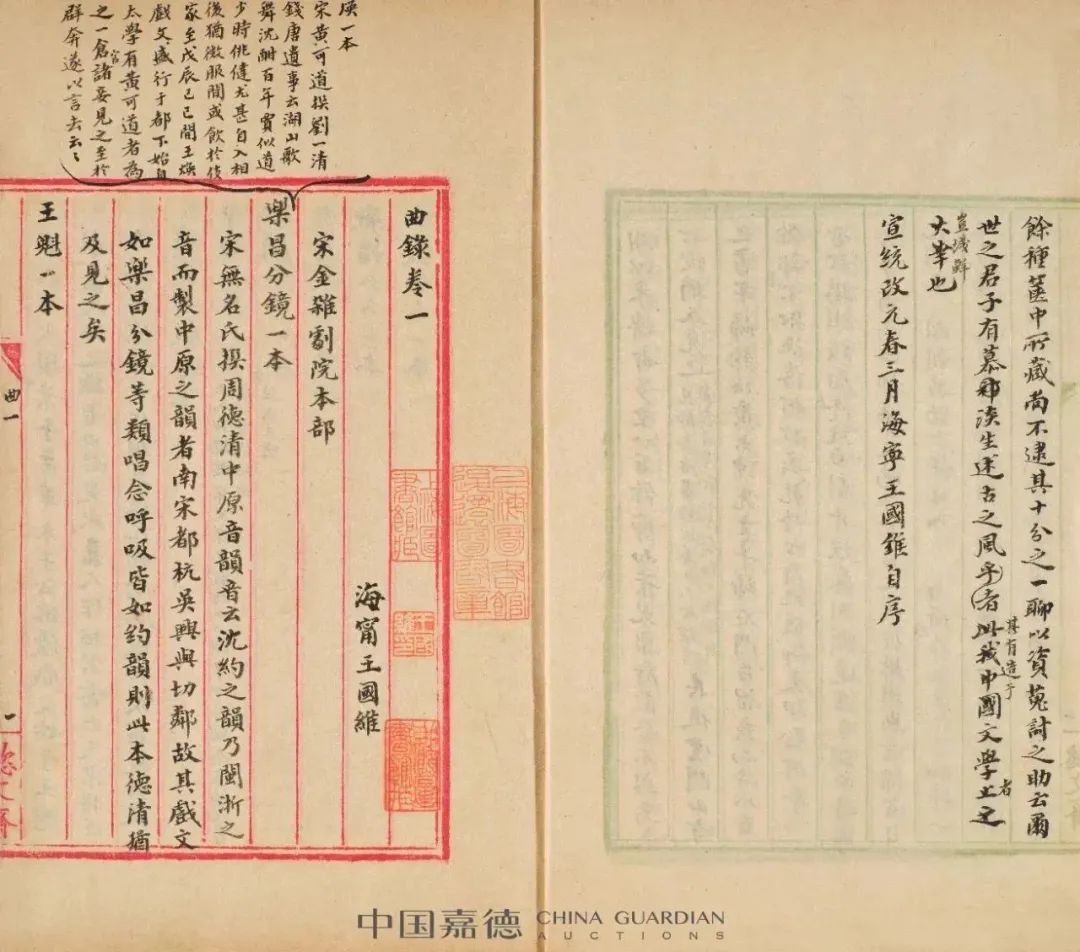 餘種篋中所藏尚不逮其十分之一聊以資蒐討之助云爾
世之君子有慕郡淡生述古之風乎者此我中國文學上之
甚有造于
者
豈淺鮮
大幸也
宣統改元春三月海寧王國維自序
煥一本
宋黃可道撰劉一清
錢唐遺事云湖山歌
舞沈酣百年賈似道
少時佻健尤甚自入相
後猶微服閒或飲於伎
家至戊辰己巳間王煥
戲文盛行于都下始自
太學有黃可道者為
之一倉官諸妾見之至於
群奔遂以言去云云
曲錄卷一
海甯王國維
宋金雜劇院本部
樂昌分鏡一本
宋無名氏撰周德清中原音韻音云沈約之韻乃閩浙之
音而製中原之韻者南宋都杭吳興與切鄰故其戲文
如樂昌分鏡等類唱念呼吸皆如約韻則此本德清猶
及見之矣
王魁一本
曲一
一
中国嘉德 CHINA GUARDIAN
AUCTIONS